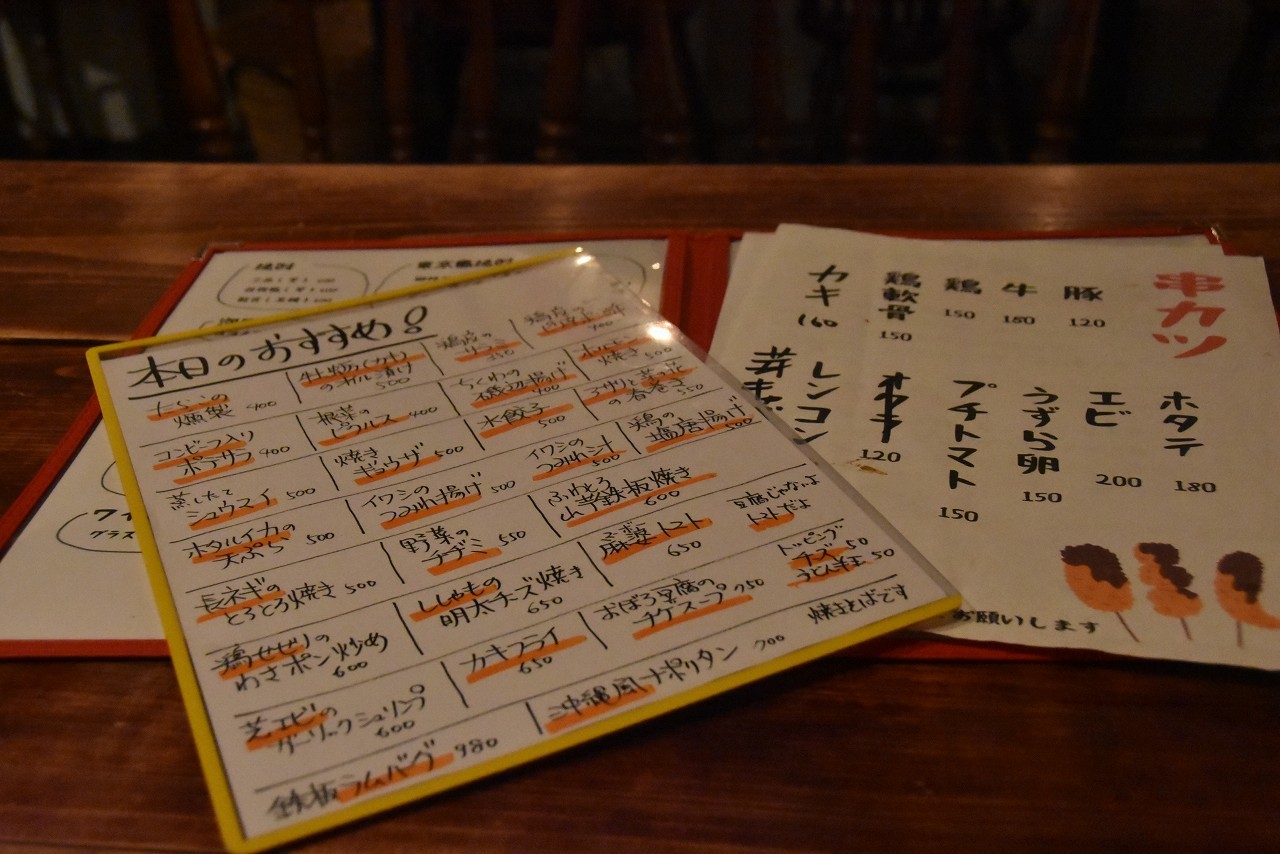 本日のおすすめ!
燻製 400
牡蛎(カキ)
のオイル漬け
500
鶏皮の
350
700
コンビーフ入り
ポテサラ 400
根菜の
ピクルス 400
ちくわの
磯辺揚げ
400
焼き 500
蒸したて
シュウマイ 500
焼き
ギョウザ 500
水餃子
500
の春巻き
550
ホタルイカの
天ぷら 500
イワシの
つみれ揚げ 500
イワシの
つみれ汁
500
鶏の
塩唐揚げ
500
長ネギの
とろとろ焼き 500
野菜の
チヂミ 550
ふわとろ
山芋鉄板焼き
600
鶏せせりの
わさポン炒め
600
ししゃもの
明太チーズ焼き
650
マーボー
麻婆トマト
650
豆腐じゃないよ
トマトだよ
芝エビの
ガーリックシュリンプ
600
カキフライ
650
おぼろ豆腐の
チゲスープ 750
トッピング
チーズ 50
うどん半玉 50
鉄板ラムバーグ 980
沖縄風ナポリタン 700
焼きそばです
串カツ
豚
120
牛
180
鶏
150
鶏軟骨
150
カキ
160
ホタテ
180
エビ
200
うずら卵
150
プチトマト
150
120
レンコン
お願いします